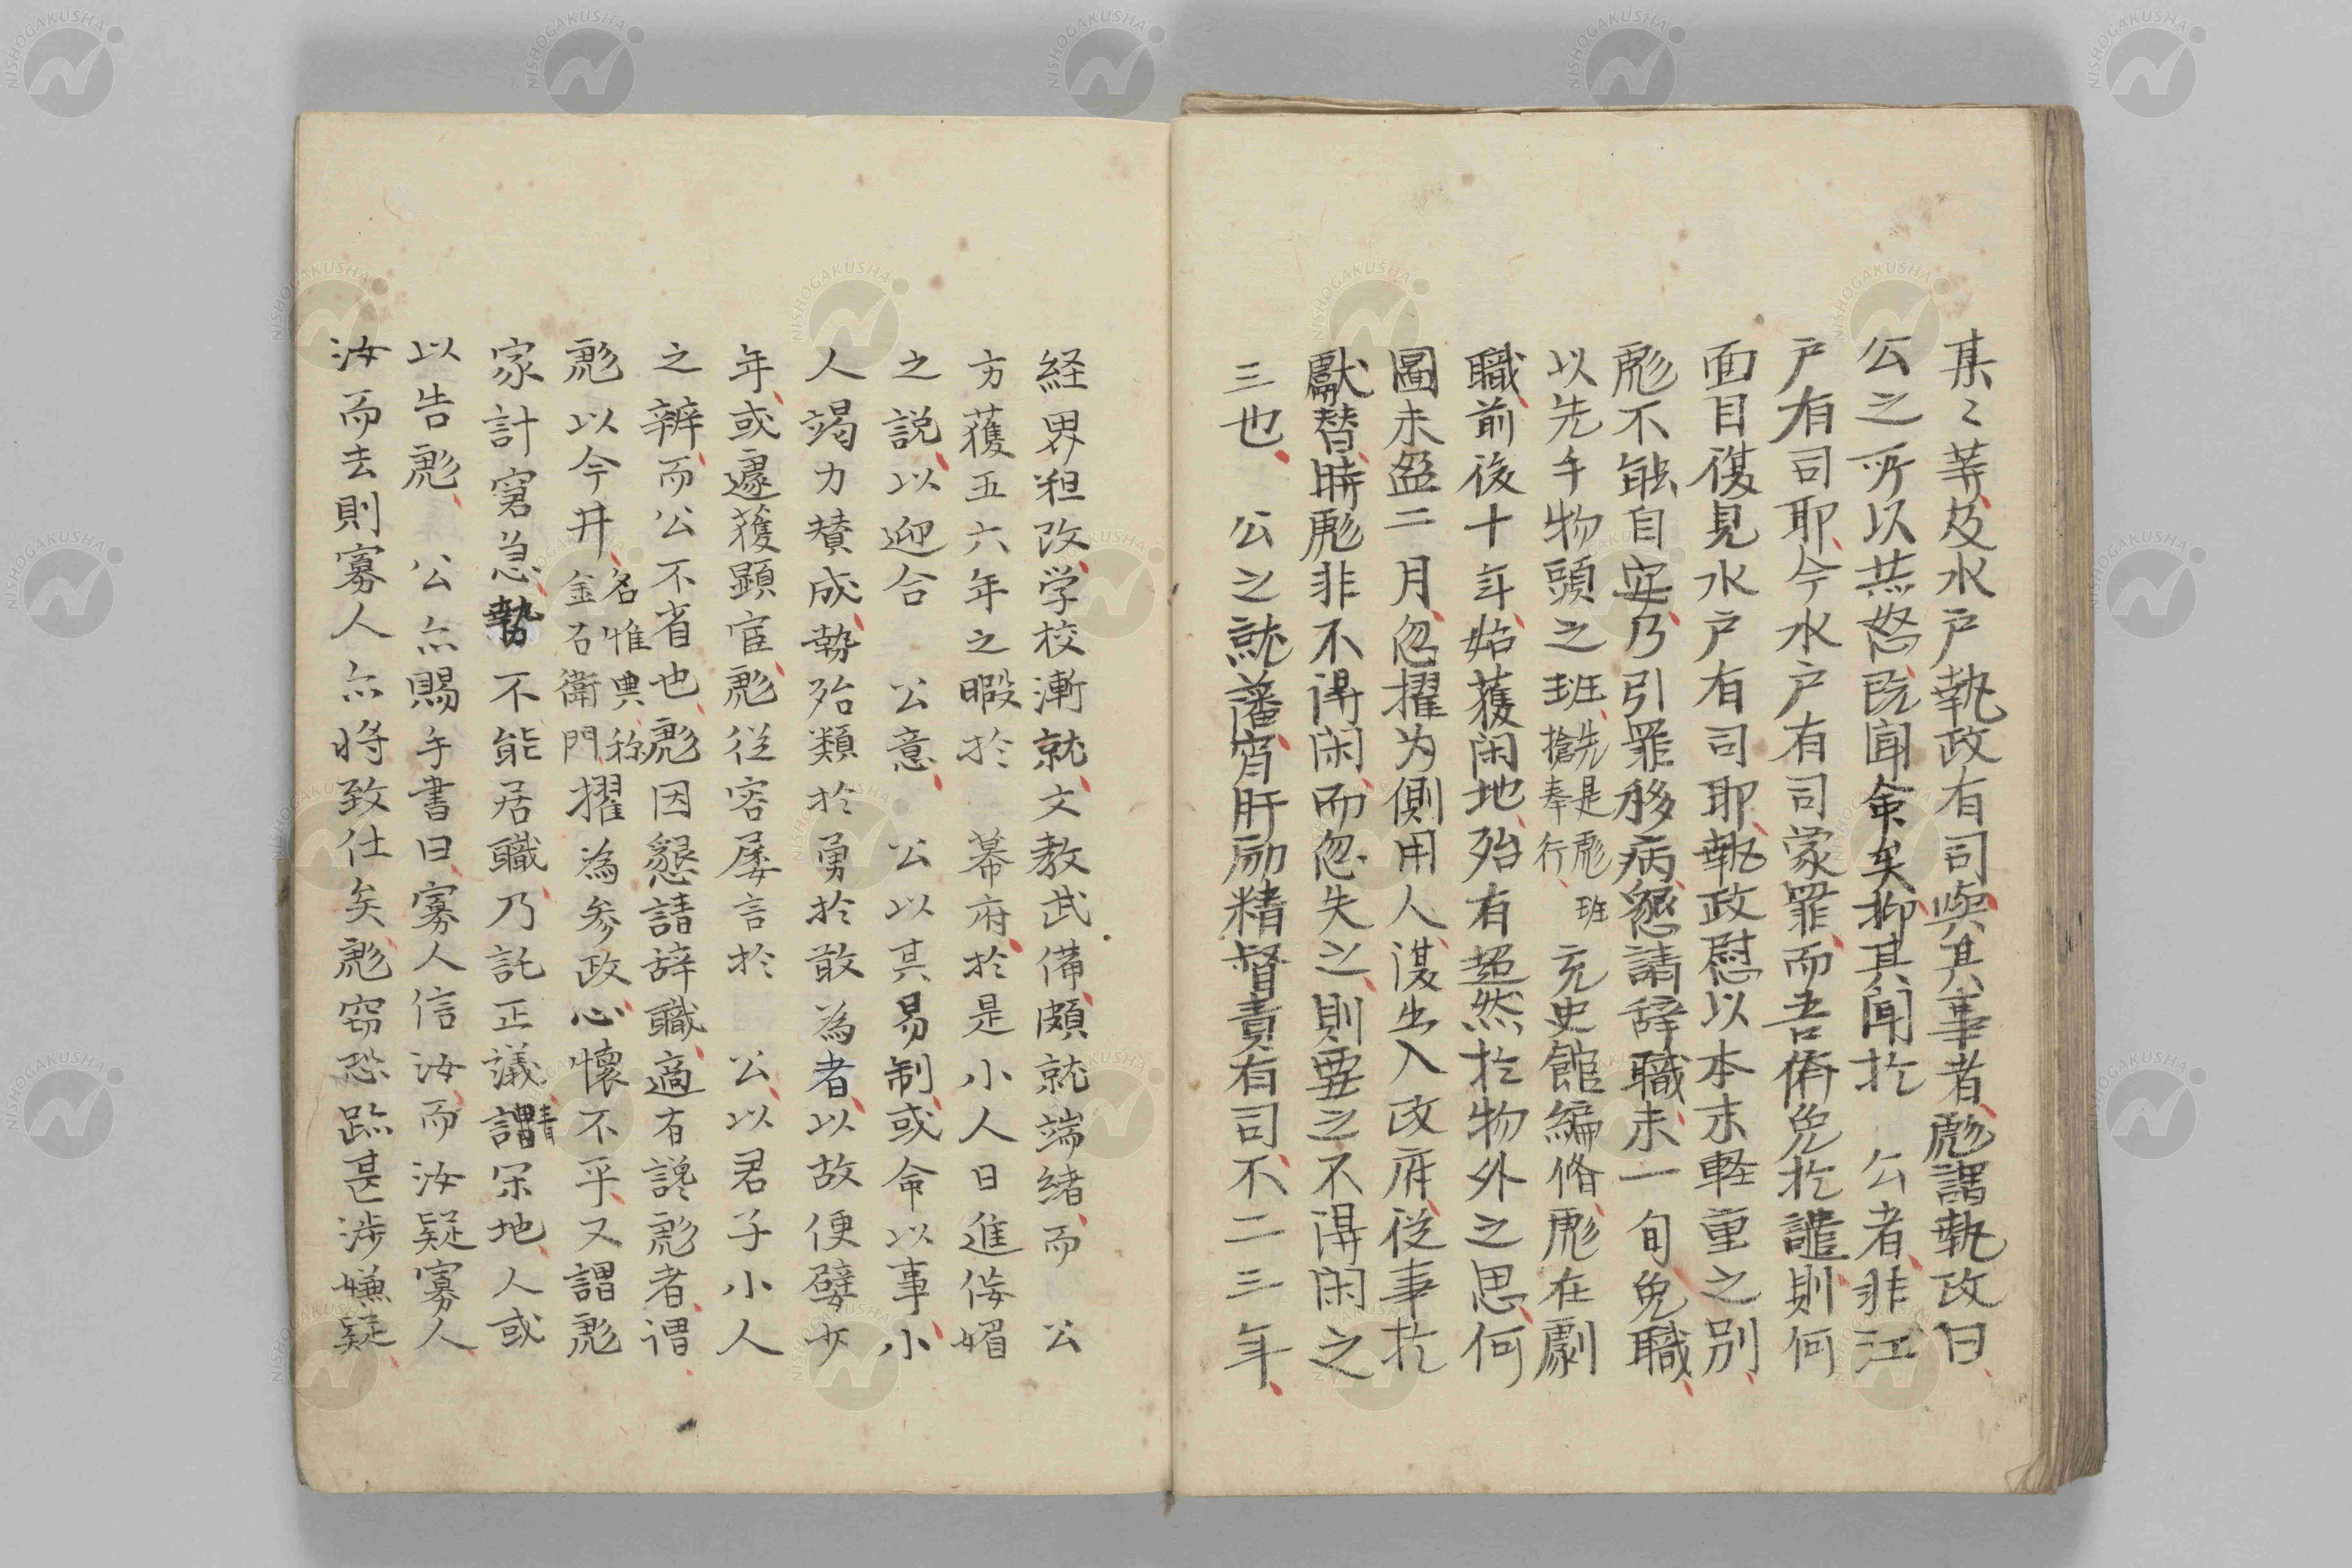 某々等及水戸執政有司與其事者彪謂執政曰
公之所以恭怒既聞命矣抑其聞於　公者非江
戸有司耶今水戸有司蒙罪而吾儕免於譴則何
面目復見水戸有司耶執政慰以本末軽重之別
彪不能自安乃引罪移病懇請辞職未一旬免職
以先手物頭之班先是彪班槍奉行充史館編脩彪在劇
職前後十年始獲閑地殆有超然於物外之思何
圖未盈二月忽擢为側用人復出入政府従事於
獻替時彪非不得閑而忽失之則要之不得閑之
三也　公之就藩宵肝励精督責有司不二三年
経界粗改学校漸就文教武備頗就端緒而　公
方獲五六年之暇於　幕府於是小人日進侫媚
之説以迎合　公意　公以其易制或命以事小
人竭力賛成勢殆類於勇於敢為者以故便嬖少
年或遽獲顕宦彪従容屡言於　公以君子小人
之辨而公不省也彪因懇請辞職適有讒彪者谓
彪以今井名惟典称金右衛門擢為参政心懐不平又謂彪
家計窘急勢不能居職乃託正議請謂閑地人或
以告彪　公亦賜手書曰寡人信汝而汝疑寡人
汝而去則寡人亦将致仕矣彪窃恐跡甚渉嫌疑
NISHOGAKUSHA